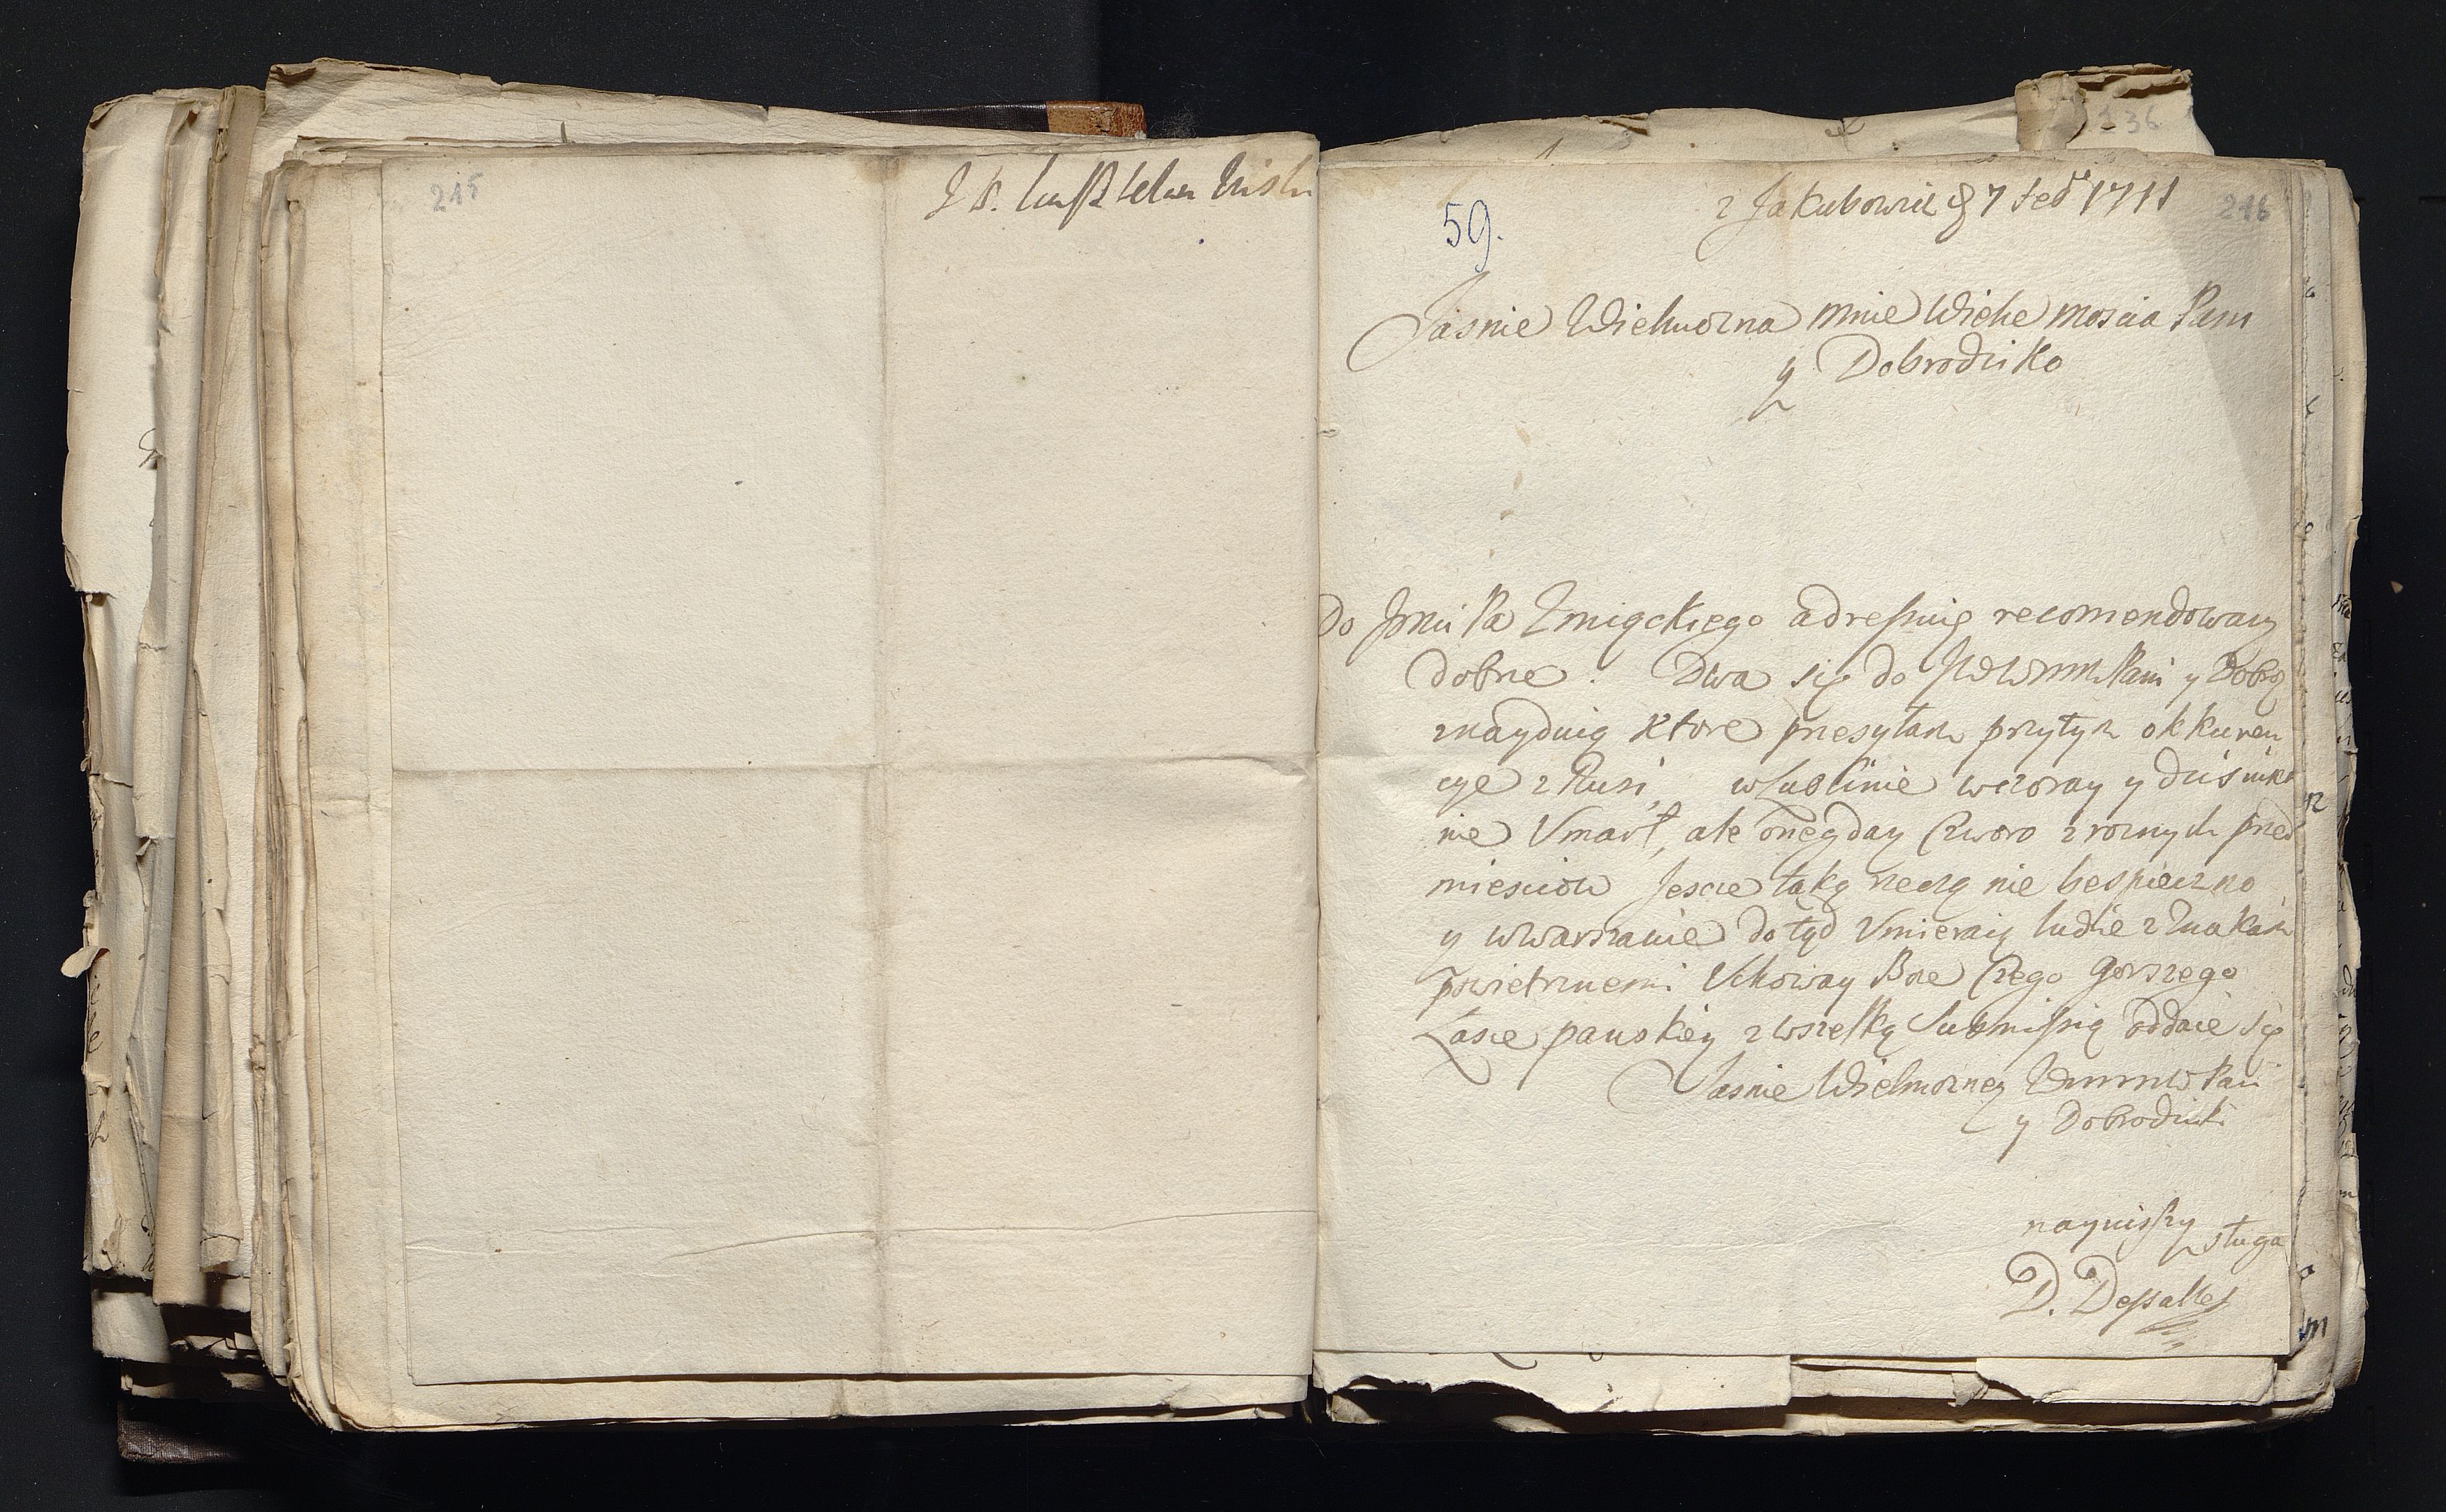 215
59.
z Jakubowic 7 1711
216
136
Jasnie Wielmozna mnie Wielce Moscia Pani
y Dobrodziko
Do Jmci Pa Zmigckiego adressuię recomendowany
dobrze. Dwa się do Pani y Dobrq
znayduią ktore przesyłam przytym okkuren
cye z Rusi, wLublinie wczoray y dzis nikt
nie Vmarł, ale onegday Czworo z roznych przed
miesciow Jescze taką rzeczą nie bespieczno
y wWarszawie dotąd Vmieraią ludzie z Znakam
powietrznemi Vchoway Boze Czego gorszego
Łasce panskiey z wszelką Submissią oddaie się
Jasnie Wielmozney Pani
y Dobrodziki
nayniszszy
sługa
D. Dessalles